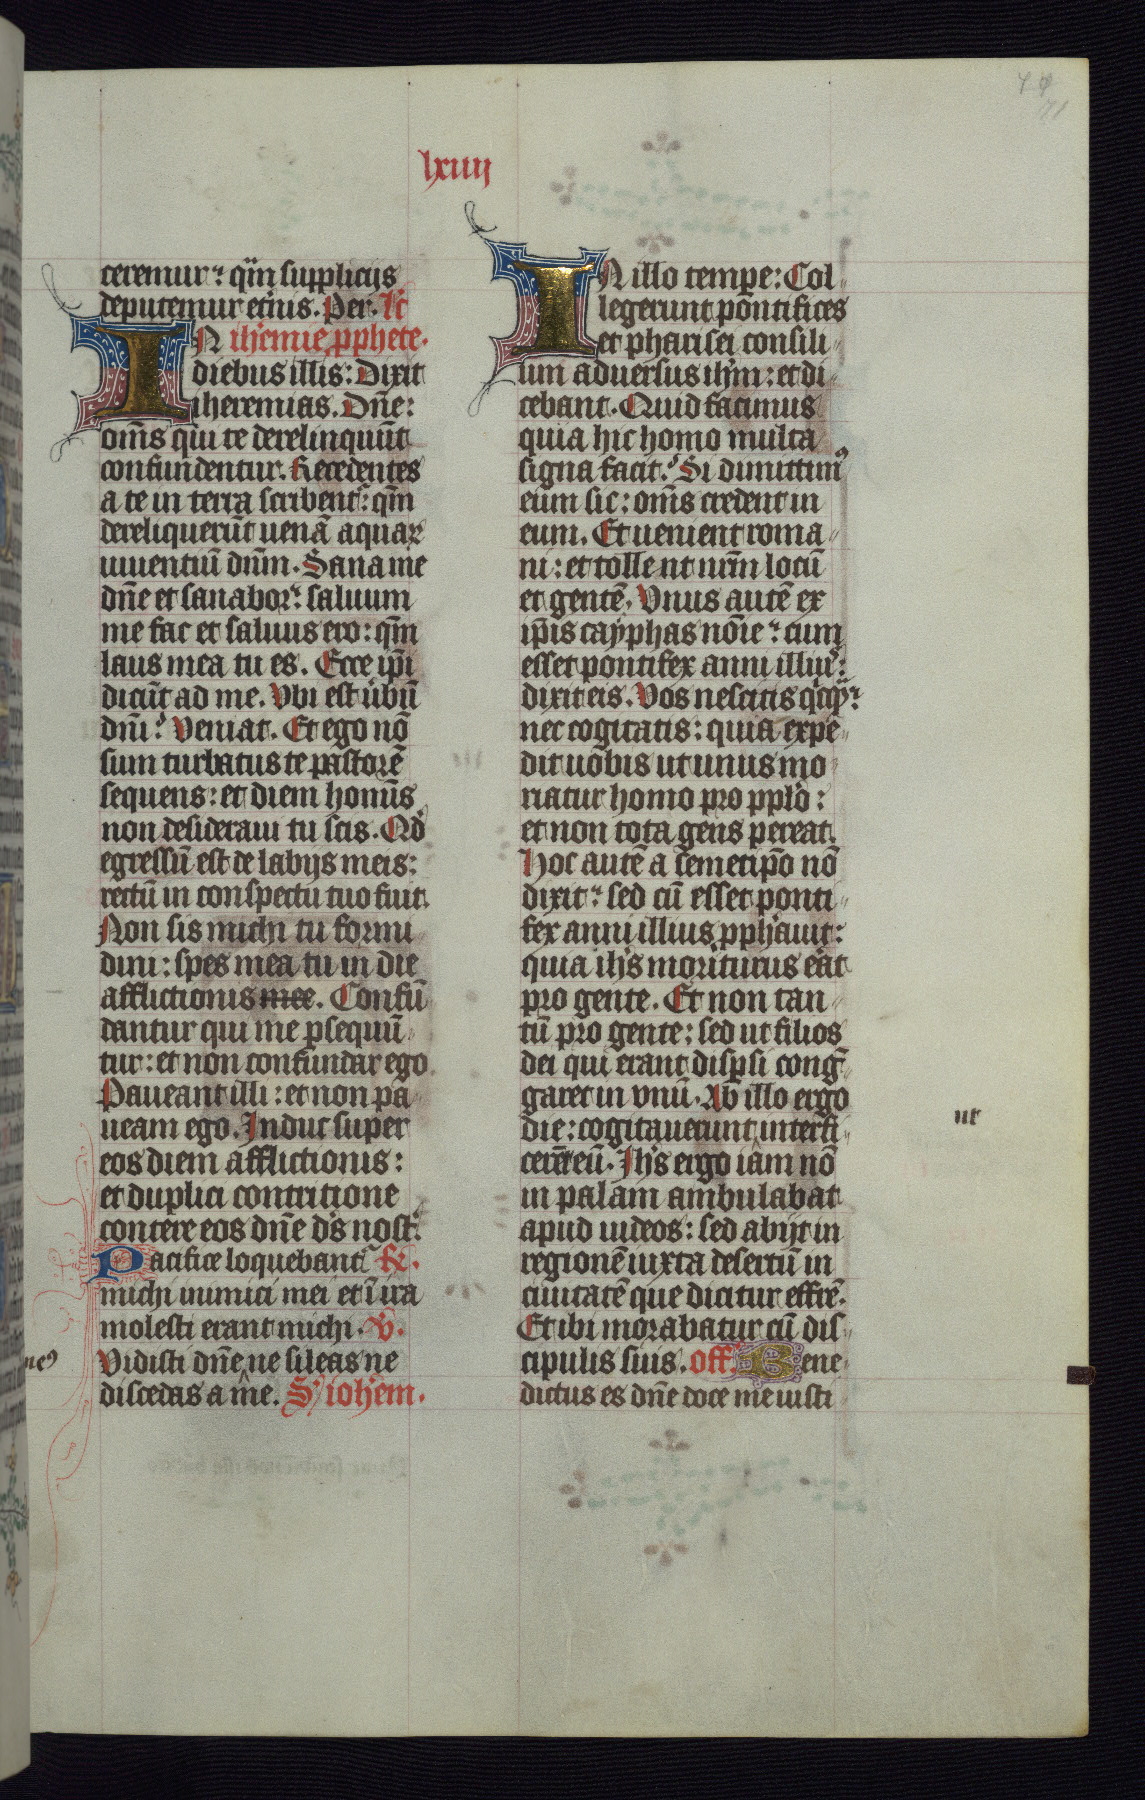 lxiiij
ceremur: qͥn supplicijs
deputemur etn̄is. Per. lc̄
IN ih'emie ꝓphete.
diebus illis: Dixit
iheremias. Dn̄e:
om̄s qui te derelinquūt
confundentur. Recedentes
a te in terra scribent᷑: qm̄
dereliquerūt uenā aquaꝝ
uiuentiū dn̄m. Sana me
dn̄e et sanabor: saluum
me fac et saluus ero: qm̄
laus mea tu es. Ecce ip̄i
dicūt ad me. Vbi est ùbū
dn̄i? Veniat. Et ego nō
sum turbatus te pastorē
sequens: et diem homīs
non desideraui tu scis. Qd̄
egressū est de labijs meis:
rectū in conspectu tuo fuit.
Non sis michi tu formi
dini: spes mea tu in die
afflictionis mee. Confū
dantur qui me ꝑsequū
tur: et non confundar ego.
Paueant illi: et non pa
ueam ego. Induc super
eos diem afflictionis:
et duplici contritione
contere eos dn̄e ds̄ nost᷑.
Pacifice loquebant᷑ R̄.
michi inimici mei et ī ira
molesti erant michi. V̄.
Vidisti dn̄e ne sileas ne
discedas a me. S' ioh'em.
IN illo tempe: Col
legerunt pontifices
et pharisei consili
um aduersus ih'm: et di
cebant. Quid facimus
quia hic homo multa
signa facit? Si dimittimꝰ
eum sic: om̄s credent in
eum. Et uenient roma
ni: et tollent nr̄m locū
et gentē. Vnus autē ex
ip̄is cayphas nōie: cum
esset pontifex anni illiuꝰ:
dixit eis. Vos nescitis qͥcqͣ:
nec cogitatis: quia expe
dit uobis ut unus mo
riatur homo pro pplo:
et non tota gens pereat.
Hoc autē a semetip̄o nō
dixit: sed cū esset ponti
fex anni illius ꝓph'auit:
quia ih's moriturus erat
pro gente. Et non tan
tū pro gente: sed ut filios
dei qui erant disꝑsi cong̅
garet in vnū. Ab illo ergo
die: cogitauerunt interfi
cerēt eū. Ih's ergo iam nō
in palam ambulabat
apud iudeos: sed abijt in
regionē iuxta desertū in
ciuitatē que dicitur effrē.
Et ibi morabatur cū dis
cipulis suis. Off. Bene
dictus es dn̄e doce me iusti
ut